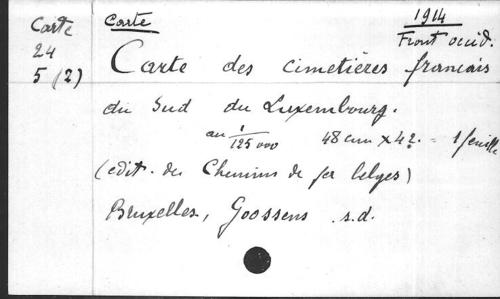 Carte
24
5 (2)
Carte
1914
Front occid.
Carte des cimetières français
du Sud du Luxembourg.
au 1/125000 48 cm x 42. = 1 feuille
(edit. des Chemins de fer belges)
Bruxelles, Goossens s.d.